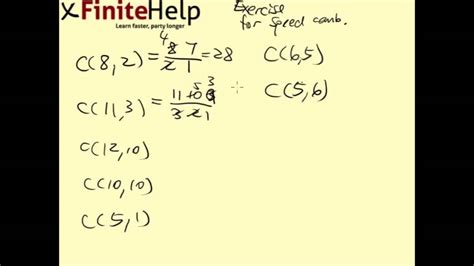 xFiniteHelp
Learn faster, party longer
Exercise
for speed comb.
C(8,2) = 8 7 / 2 1 = 28
4
C(11,3) = 11 10 9 / 3 2 1
5 3
C(12,10)
C(10,10)
C(5,1)
C(6,5)
C(5,6)